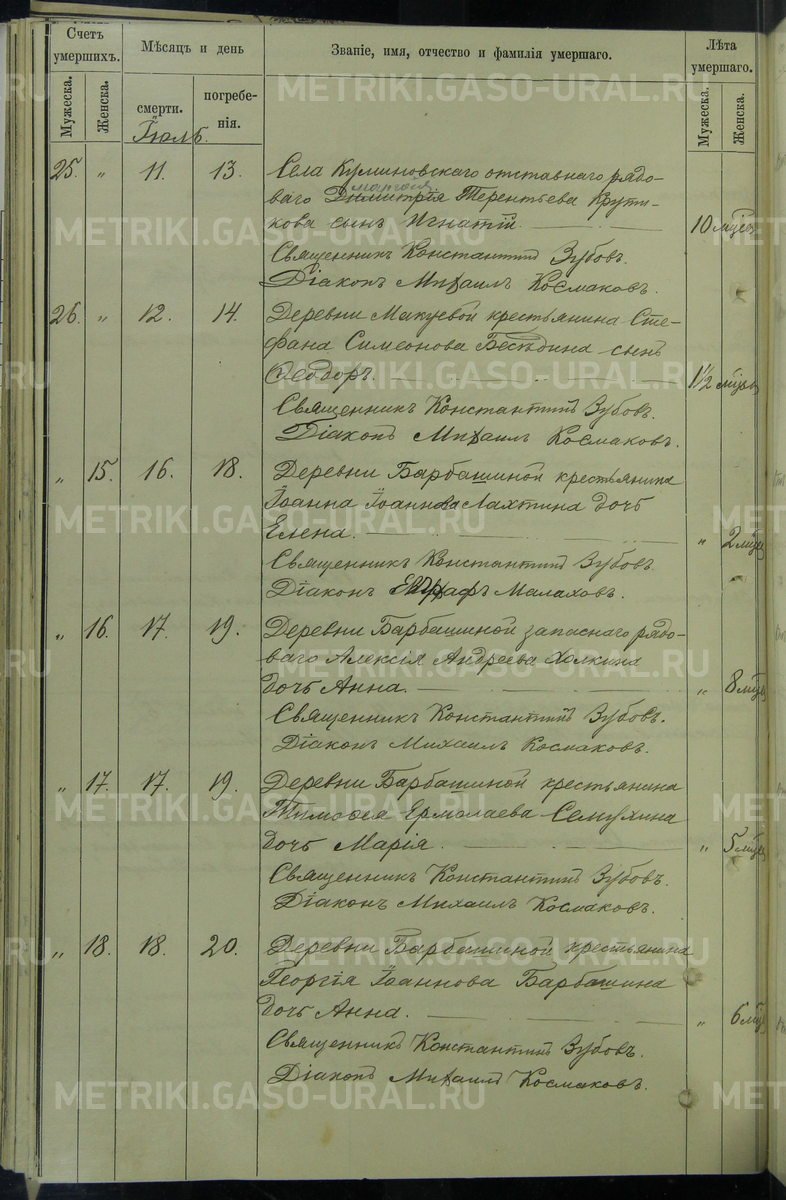 Счетъ умершихъ.
Мужеска.
Женска.
Мѣсяцъ и день
смерти.
погребе-
нія.
Званіе, имя, отчество и фамилія умершаго.
Лѣта умершаго.
Мужеска.
Женска.
Іюль.
25. " 11. 13. Села Куминовскаго отставнаго рядо-
ваго Димитрія Терентьева Крути-
кова сынъ Игнатій. 10 мѣс
Священникъ Константинъ Зубовъ.
Діаконъ Михаилъ Космаковъ.
26. " 12. 14. Деревни Макуевой крестьянина Сте-
фана Симеонова Бесѣдина сынъ
Ѳеодоръ. 1 1/2 мѣс
Священникъ Константинъ Зубовъ.
Діаконъ Михаилъ Космаковъ.
" 15. 16. 18. Деревни Барбашиной крестьянина
Іоанна Іоаннова Лахтина дочь
Елена. " 2 мѣс
Священникъ Константинъ Зубовъ.
Діаконъ Евграфъ Малаховъ.
" 16. 17. 19. Деревни Барбашиной запаснаго рядо-
ваго Алексія Андреева Холкина
дочь Анна. " 8 мѣс
Священникъ Константинъ Зубовъ.
Діаконъ Михаилъ Космаковъ.
" 17. 17. 19. Деревни Барбашиной крестьянина
Тимоѳея Ермолаева Семухина
дочь Марія. " 5 мѣс
Священникъ Константинъ Зубовъ.
Діаконъ Михаилъ Космаковъ.
" 18. 18. 20. Деревни Барбашиной крестьянина
Георгія Іоаннова Барбашина
дочь Анна. " 6 мѣс
Священникъ Константинъ Зубовъ.
Діаконъ Михаилъ Космаковъ.
METRIKI.GASO-URAL.RU